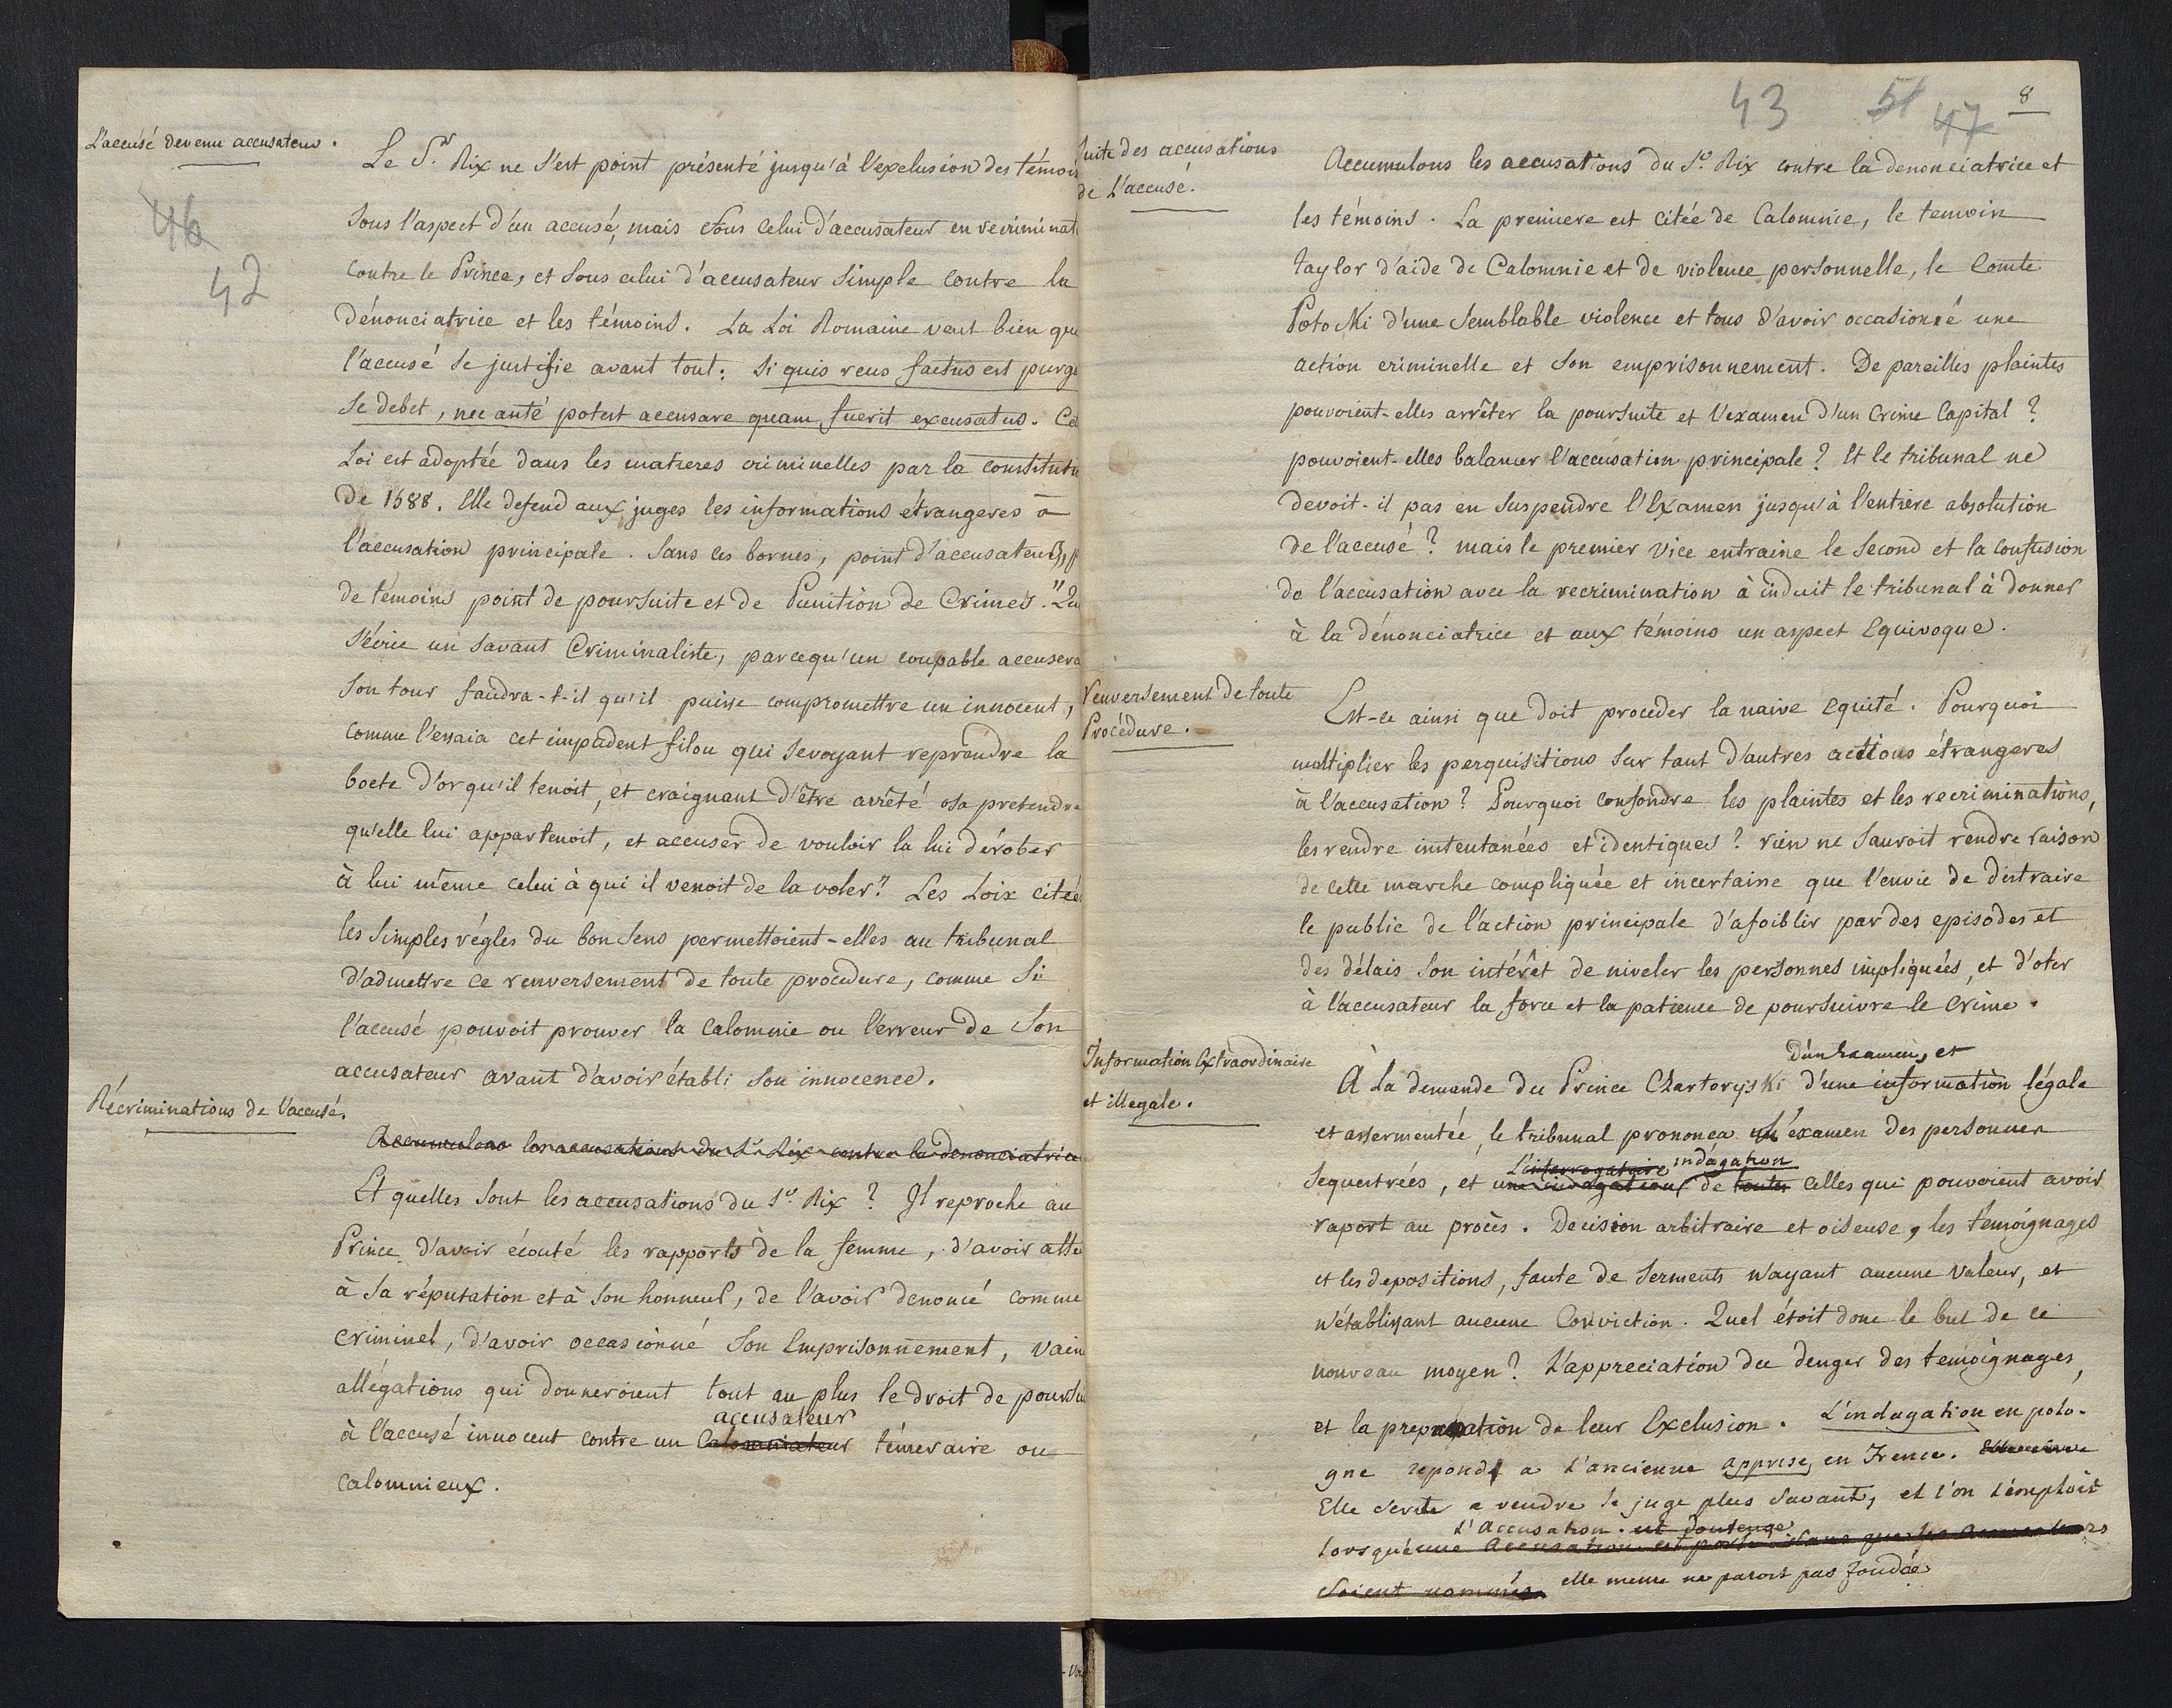 L'accusé devenu accusateur.
46
42
Le S.r Rix ne s'est point présenté jusqu'à l'exclusion des témoi
sous l'aspect d'un accusé, mais sous celui d'accusateur en recriminat
contre le Prince, et sous celui d'accusateur simple contre la
dénonciatrice et les témoins. La Loi Romaine veut bien que
l'accusé se justifie avant tout: Si quis reus factus est purga
se debet, nec anté potest accusare quam fuerit excusatus. Cet
Loi est adoptée dans les matieres criminelles par la constitutio
de 1588. Elle defend aux juges les informations étrangeres à
l'accusation principale. Sans ces bornes, point d'accusateurs, p
de témoins point de poursuite et de Punition de Crimes. "Qu
s'écrie un savant Criminaliste, parcequ'un coupable accusera
son tour faudra-t-il qu'il puisse compromettre un innocent,
comme l'essaia cet impudent filou qui se voyant reprendre la
boete d'or qu'il tenoit, et craignant d'être arrêté osa pretendre
qu'elle lui appartenoit, et accuser de vouloir la lui dérober
à lui même celui à qui il venoit de la voler? Les Loix citée
les simples régles du bon sens permettoient-elles au tribunal
d'admettre ce renversement de toute procedure, comme si
l'accusé pouvoit prouver la calomnie ou l'erreur de son
accusateur avant d'avoir établi son innocence.
Récriminations de l'accusé.
Accumulons les accusations du S.r Rix contre la denonciatrice
Et quelles sont les accusations du S.r Rix? Il reproche au
Prince d'avoir écouté les rapports de la femme, d'avoir atte
à sa réputation et à son honneur, de l'avoir denoncé comme
criminel, d'avoir occasionné son Emprisonnement, vain
allégations qui donneroient tout au plus le droit de poursu
accusateur
à l'accusé innocent contre un Calomniateur témeraire ou
calomnieux.
43 51 47 8
Suite des accusations
de l'accusé.
Accumulons les accusations du S.r Rix contre la denonciatrice et
les témoins. La premiere est citée de Calomnie, le temoin
Taylor d'aide de Calomnie et de violence personnelle, le Comte
Potocki d'une semblable violence et tous d'avoir occasionné une
action criminelle et son emprisonnement. De pareilles plaintes
pouvoient-elles arrêter la poursuite et l'examen d'un Crime Capital?
pouvoient-elles balancer l'accusation principale? Et le tribunal ne
devoit-il pas en suspendre l'Examen jusqu'à l'entiere absolution
de l'accusé? mais le premier vice entraine le second et la confusion
de l'accusation avec la recrimination à induit le tribunal à donner
à la dénonciatrice et aux témoins un aspect Equivoque.
Renversement de toute
Procédure.
Est-ce ainsi que doit proceder la naive equité. Pourquoi
multiplier les perquisitions sur tant d'autres actions étrangeres
à l'accusation? Pourquoi confondre les plaintes et les recriminations,
les rendre instentanées et identiques? rien ne sauroit rendre raison
de cette marche compliquée et incertaine que l'envie de distraire
le public de l'action principale d'afoiblir par des episodes et
des délais son intérêt de niveler les personnes impliquées, et d'oter
à l'accusateur la force et la patience de poursuivre le crime.
Information Extraordinaire
et illegale.
d'un Examen, et
À la demande du Prince Czartoryski d'une information légale
et assermentée, le tribunal prononça l'examen des personnes
L'interrogatoire indagation
sequestrées, et une indagation de toutes celles qui pouvoient avoir
raport au procès. Decision arbitraire et oiseuse, les témoignages
et les depositions, faute de serments n'ayant aucune valeur, et
n'établissant aucune Conviction. Quel étoit donc le but de ce
nouveau moyen? L'appreciation du denger des temoignages,
et la preparation de leur Exclusion. L'indagation en polo-
gne repond a l'ancienne apprise, en France.
Elle sert a rendre le juge plus savant, et l'on l'emploie
L'Accusation. est soutenue
lorsqu'une Accusation est portée sans que les Accusateurs
soient nommés elle meme ne paroit pas fondée